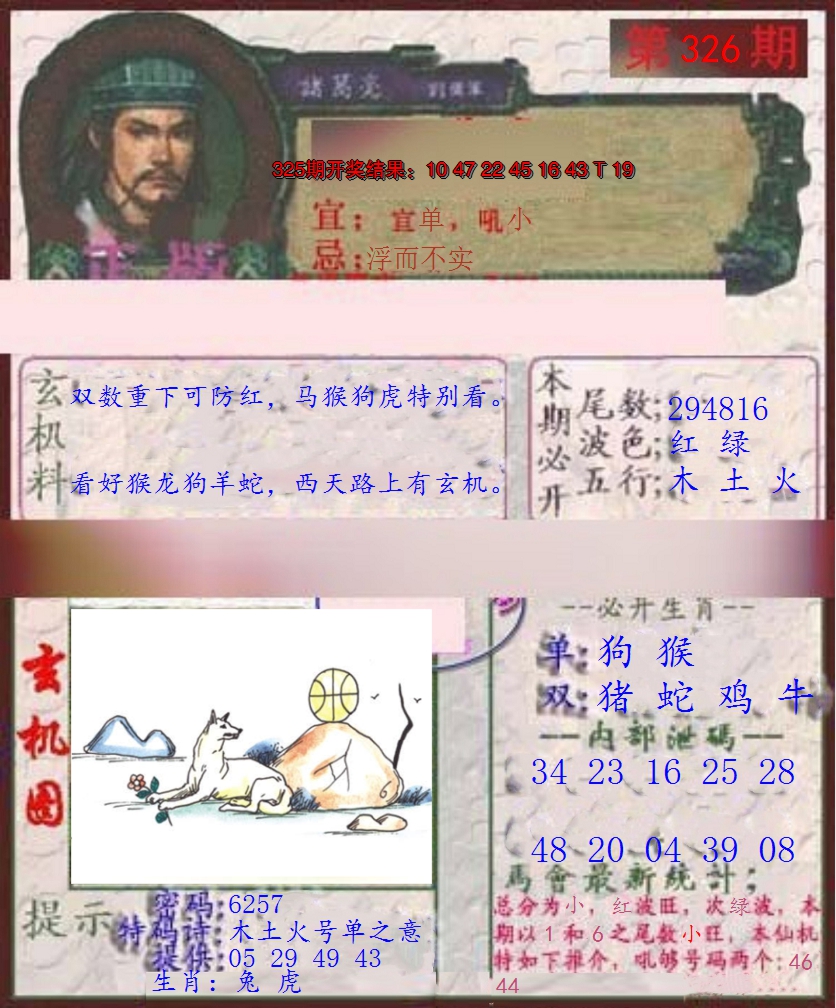 第 326 期
諸葛亮
325期开奖结果：10 47 22 45 16 43 T 19
宜：宜单，吼小
忌：浮而不实
正版
玄机料
双数重下可防红，马猴狗虎特别看。
看好猴龙狗羊蛇，西天路上有玄机。
本期必开
尾数：294816
波色：红 绿
五行：木 土 火
玄机图
--必开生肖--
单：狗 猴
双：猪 蛇 鸡 牛
一内部泄碼一
34 23 16 25 28
48 20 04 39 08
馬會最新統計；
总分为小，红波旺，次绿波，本
期以1和6之尾数小旺，本仙机
特如下推介，吼够号码两个：46
44
提示
密码：6257
特码诗：木土火号单之意
提供：05 29 49 43
生肖：兔 虎